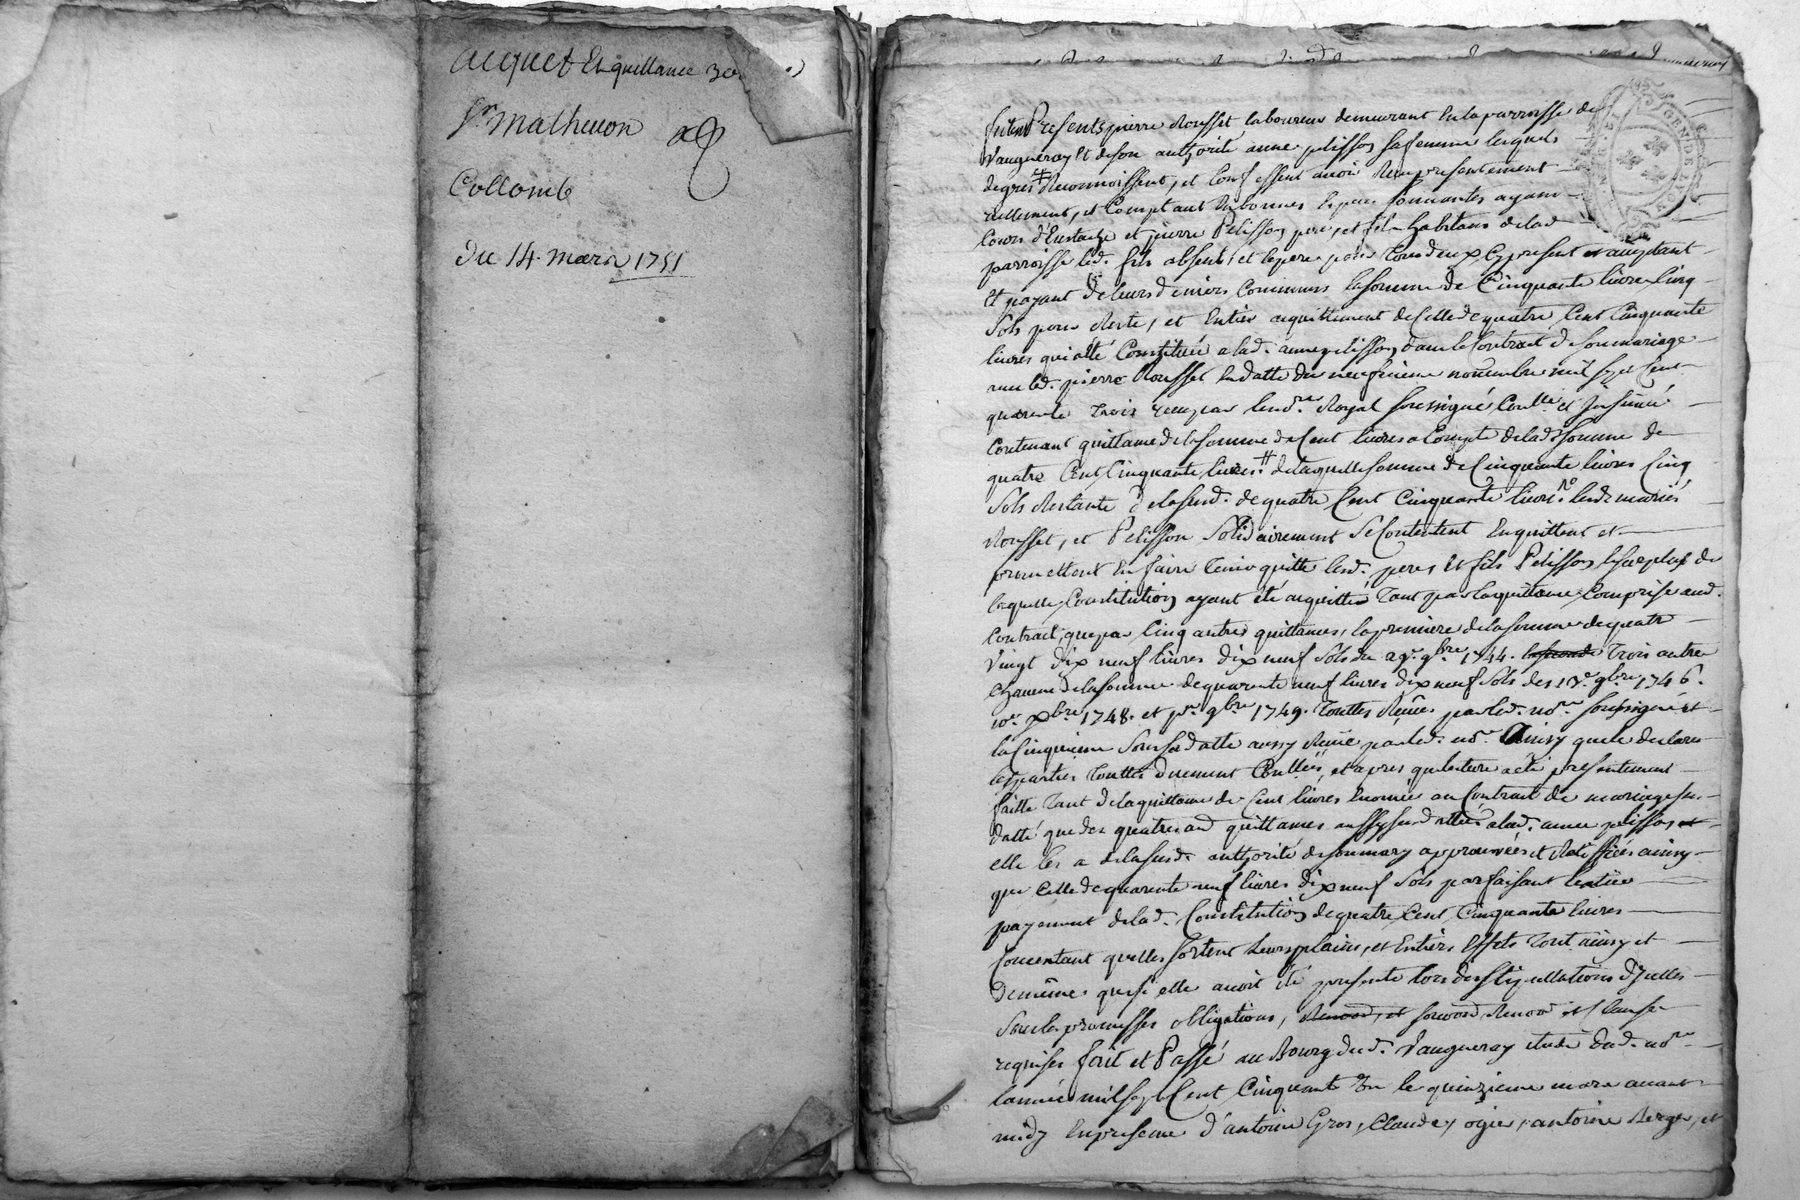 acquet Et quittance
Sr. Mathevon
Collomb
Du 14. mars 1751
furent Presents pierre Rousset laboureur demeurant en la parroisse de
Vaugneray Et de son authorité anne pelisson sa femme lesquels
de gres Reconnoissent, et Confessent avoir Reçu presentement
reellement, et Comptant En bonnes Especes sonnantes ayant
Cours d'Eustache et pierre Pelisson pere, et fils habitans de lad.
parroisse led. fils absent, et le pere pour Tous deux Cy present et acceptant
Et payant de leurs deniers Communs la somme de Cinquante livres Cinq
Sols pour Reste, et Entier acquittement de Celle de quatre Cent Cinquante
livres qui a été Constituée a lad. anne pelisson dans le Contract de son mariage
avec led. pierre Rousset En datte du neufvieme novembre mil sept Cent
quarente Trois reçu par le no.re Royal soussigné, Conllé et Insinué
Contenant quittance de la somme de Cent livres a Compte de lad. somme de
quatre Cent Cinquante livres. de laquelle somme de Cinquante livres Cinq
Sols Restante de la susd. de quatre Cent Cinquante livres lesd. mariés
Rousset, et Pelisson Solidairement Se Contentent Enquittent et
promettent En faire Tenir quitte lesd. pere Et fils Pelisson, le surplus de
laquelle Constitution ayant été acquitté Tant par la quittance Comprise aud.
Contract, que par Cinq autres quittances, la premiere de la somme de quatre
Vingt dix neuf livres dix neuf Sols du 29e. 9bre 1744. la seconde Trois autres
Chacune de la somme de quarente neuf livres dix neuf Sols des 13e. 9bre 1746.
10e. Xbre 1748. et pr. 9bre 1749. Touttes Reçues par led. no.re soussigné et
la Cinquieme sans datte aussy Reçüe par led. no.re Ainsy que le declarent
les parties Touttes duement Conllées, et apres que lecture a été presentement
faitte Tant de la quittance de Cent livres Enoncée au Contract de mariage sus
datté que des quatre aud quittances aussy susdattées a lad. anne pelisson et
elle les a de la susd. authorité de son mary approuvées et Ratiffiées ainsy
que Celle de quarente neuf livres dix neuf Sols parfaisant l'entier
payement de lad. Constitution de quatre Cent Cinquante livres
Consentant qu'elles sortent leurs plains, et Entiers Effets Tout ainsy et
de même que si elle avoit été presente lors des stipullations d'Icelles
Sous les promesses obligations, Renon, et soumon Renon et Clauses
requises fait et Passé au Bourg dud. Vaugneray étude dud. no.re
l'année mil sept Cent Cinquante Un le quinzieme mars avant
midy En presence d'antoine Gros, Claude ogier, antoine Berger, et